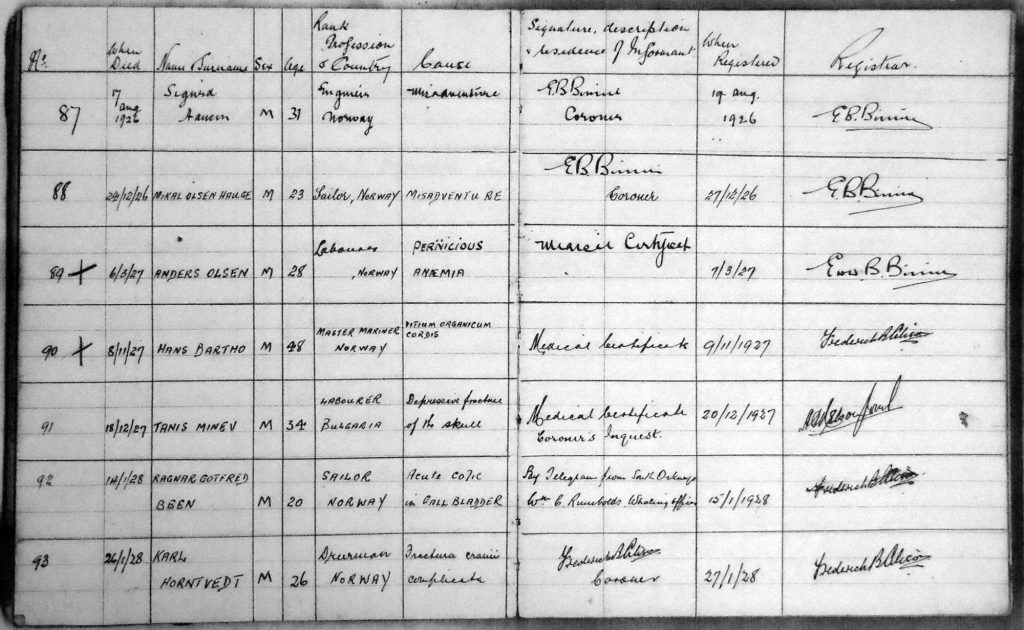 No. When Died Name & Surname Sex Age Rank Profession & Country Cause Signature, description & residence of Informant When Registered Registrar.
87 17 aug 1926 Sigurd M 31 Engineer Norway Misadventure E.B. Binnie Coroner 19 aug. 1926 E.B. Binnie
88 /12/26 MIKAL OLSEN HAUGE M 23 Sailor, NORWAY MISADVENTURE E B Binnie Coroner 27/12/26 E.B. Binnie
89 + 6/3/27 ANDERS OLSEN M 28 Labourer, NORWAY PERNICIOUS ANÆMIA Certificate 7/3/27 Edw B. Binnie
90 + 8/11/27 HANS BARTHO M 48 MASTER MARINER NORWAY VITIUM ORGANICUM CORDIS Medical Certificate 9/11/1927
91 18/12/27 TANIS MINEV M 34 LABOURER BULGARIA Depressive fracture of the skull Medical Certificate Coroner's Inquest. 20/12/1927
92 14/1/28 RAGNAR GOTFRED BEEN M 20 SAILOR NORWAY Acute colic in GALL BLADDER By Telegram from South Orkneys Wm C. Rumbolds Whaling Officer 15/1/1928
93 26/1/28 KARL HORNTVEDT M 26 NORWAY Fractura cranii complicata Coroner 27/1/28